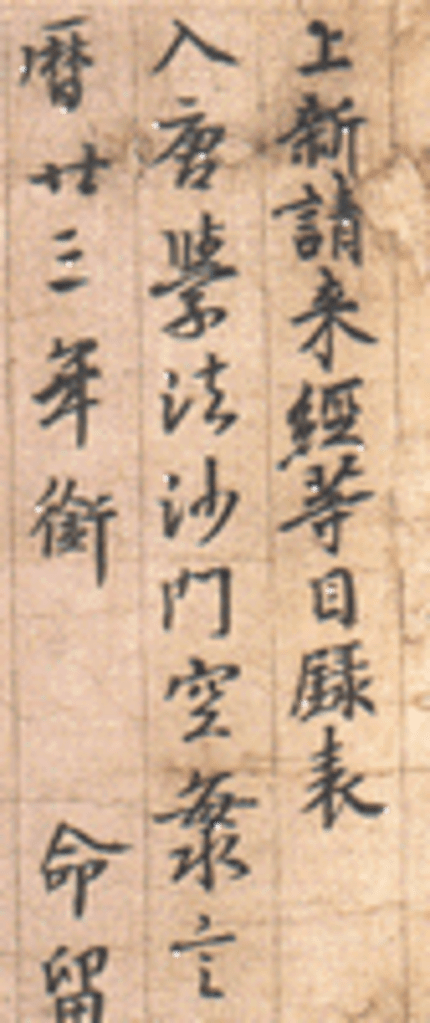 上新請来經等目録表
入唐學法沙門空海言
曆廿三年銜 命留